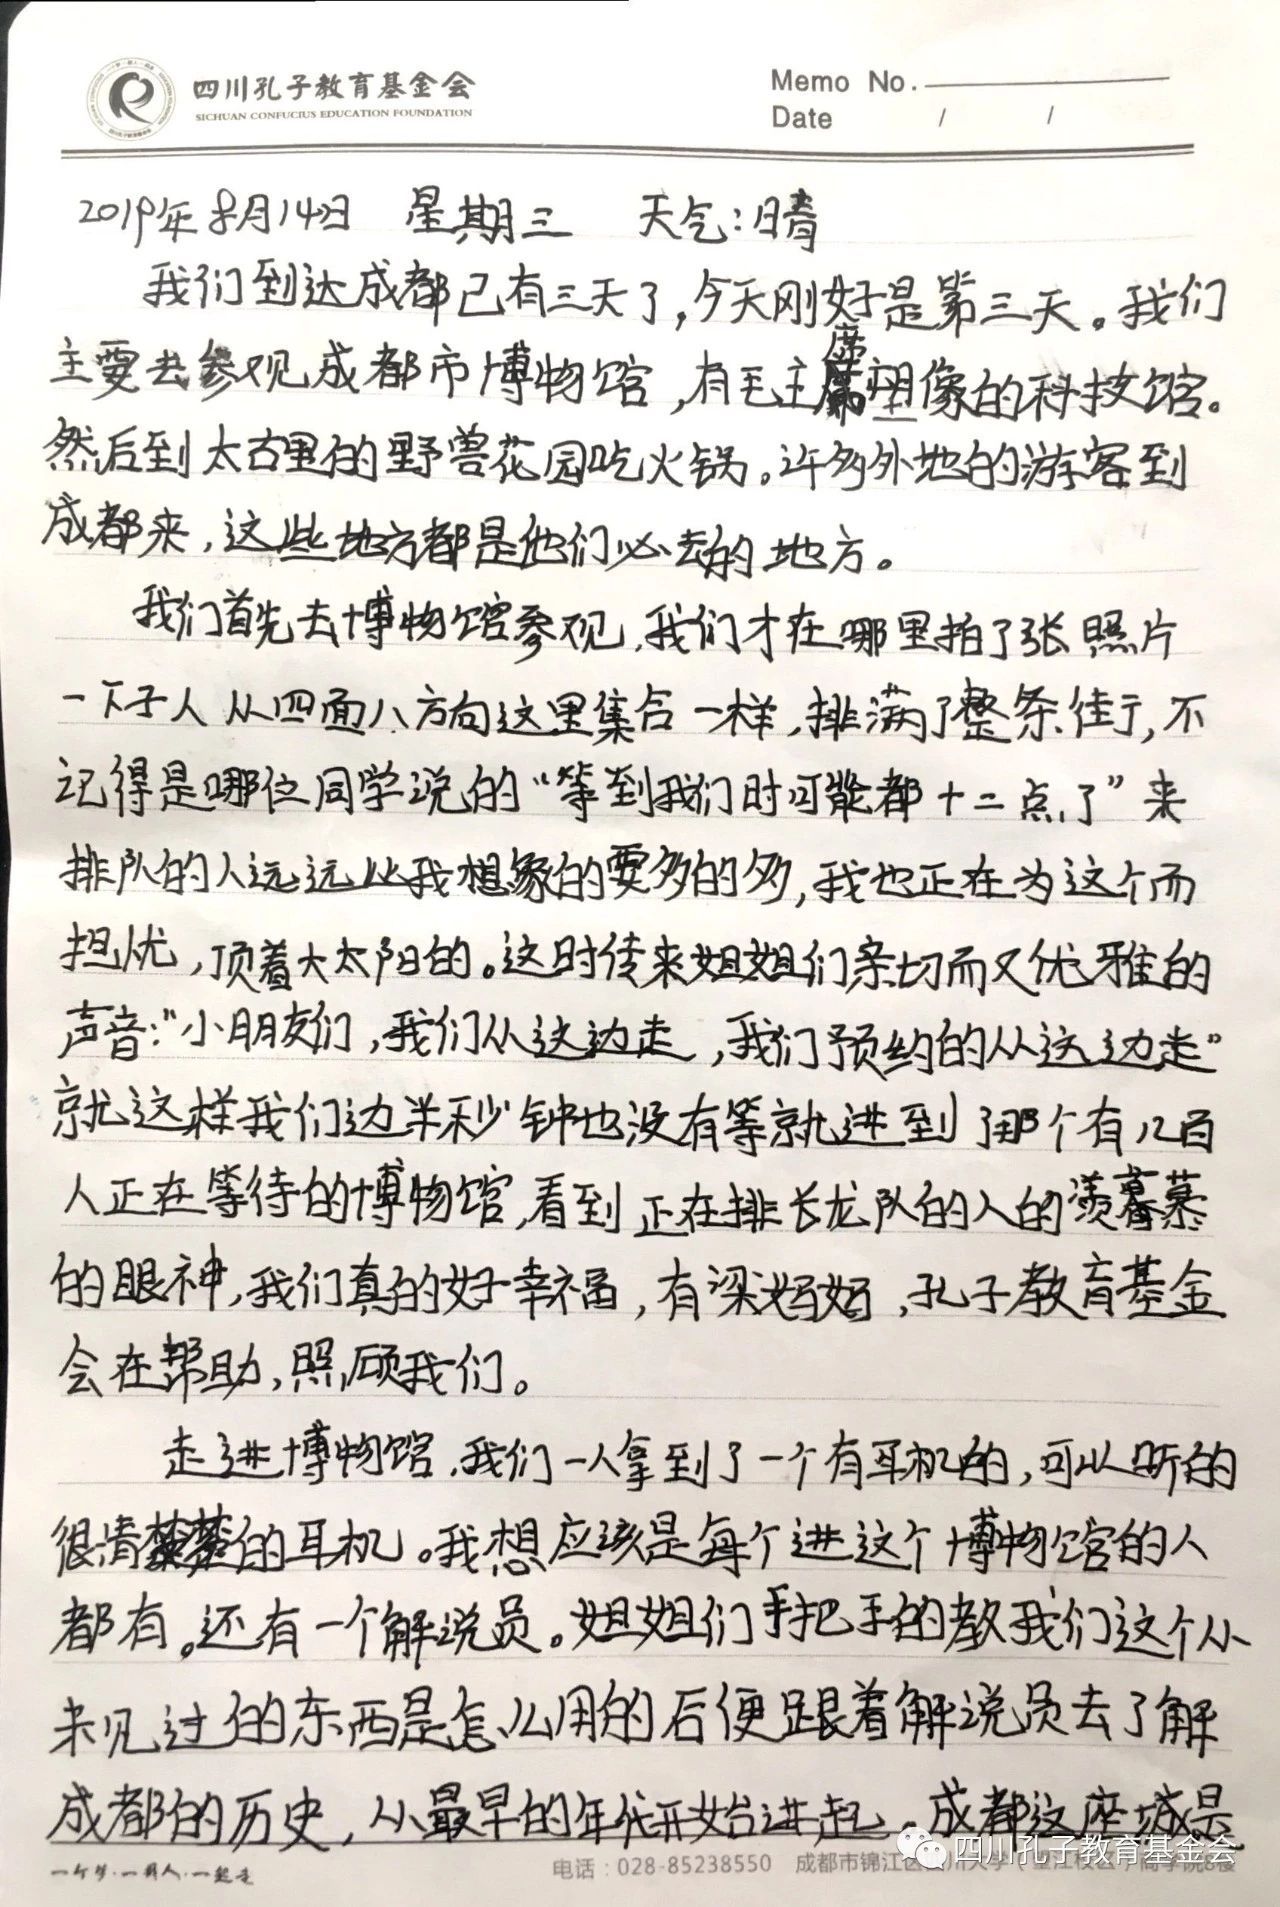 四川孔子教育基金会
SICHUAN CONFUCIUS EDUCATION FOUNDATION
Memo No.
Date / /
2019年8月14日 星期三 天气:晴
我们到达成都已有三天了,今天刚好是第三天。我们
主要去参观成都市博物馆,有毛主席塑像的科技馆。
然后到太古里的野兽花园吃火锅。许多外地的游客到
成都来,这些地方都是他们必去的地方。
我们首先去博物馆参观,我们才在哪里拍了张照片
一下子人从四面八方向这里集合一样,排满了整条街,不
记得是哪位同学说的“等到我们时可能都十二点了”来
排队的人远远比我想象的要多的多,我也正在为这个而
担忧,顶着大太阳的。这时传来姐姐们亲切而又优雅的
声音:“小朋友们,我们从这边走,我们预约的从这边走”
就这样我们边半秒钟也没有等就进到了那个有几百
人正在等待的博物馆,看到正在排长龙队的人的羡慕
的眼神,我们真的好幸福,有梁妈妈,孔子教育基金
会在帮助,照顾我们。
走进博物馆,我们一人拿到了一个有耳机的,可以听的
很清楚的耳机。我想应该是每个进这个博物馆的人
都有。还有一个解说员。姐姐们手把手的教我们这个小
未见过的东西是怎么用的后便跟着解说员去了解
成都的历史,从最早的年代开始进起,成都这座城是
四川孔子教育基金会
电话:028-85238550 成都市锦江区